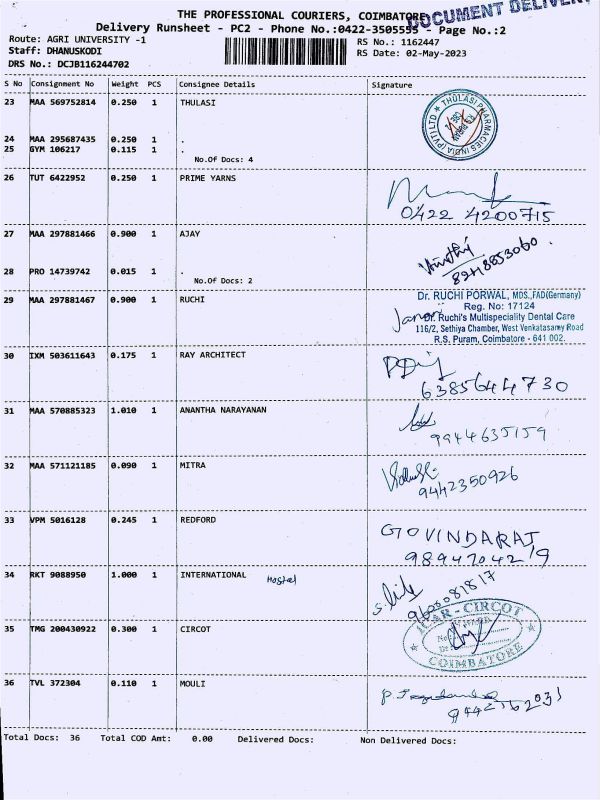 THE PROFESSIONAL COURIERS, COIMBATORE
DOCUMENT DELIVER
Delivery Runsheet - PC2 - Phone No.:0422-3505555 - Page No.:2
Route: AGRI UNIVERSITY -1
RS No.: 1162447
Staff: DHANUSKODI
RS Date: 02-May-2023
DRS No.: DCJB116244702
S No Consignment No Weight PCS Consignee Details Signature
23 MAA 569752814 0.250 1 THULASI
THULASI PHARMACIES INDIA (PVT) LTD
24 MAA 295687435 0.250 1 .
25 GYM 106217 0.115 1 .
No.Of Docs: 4
26 TUT 6422952 0.250 1 PRIME YARNS
0422 4200715
27 MAA 297881466 0.900 1 AJAY
28 PRO 14739742 0.015 1 .
No.Of Docs: 2
29 MAA 297881467 0.900 1 RUCHI
Dr. RUCHI PORWAL, MDS.,FAD(Germany)
Reg. No: 17124
Dr. Ruchi's Multispeciality Dental Care
116/2, Sethiya Chamber, West Venkatasamy Road
R.S. Puram, Coimbatore - 641 002.
30 IXM 503611643 0.175 1 RAY ARCHITECT
6385644730
31 MAA 570885323 1.010 1 ANANTHA NARAYANAN
9944635159
32 MAA 571121185 0.090 1 MITRA
9442350926
33 VPM 5016128 0.245 1 REDFORD
GOVINDARAJ
9894704219
34 RKT 9088950 1.000 1 INTERNATIONAL Hostel
9605081817
35 TMG 200430922 0.300 1 CIRCOT
ICAR - CIRCOT
COIMBATORE
36 TVL 372304 0.110 1 MOULI
Total Docs: 36 Total COD Amt: 0.00 Delivered Docs: Non Delivered Docs: